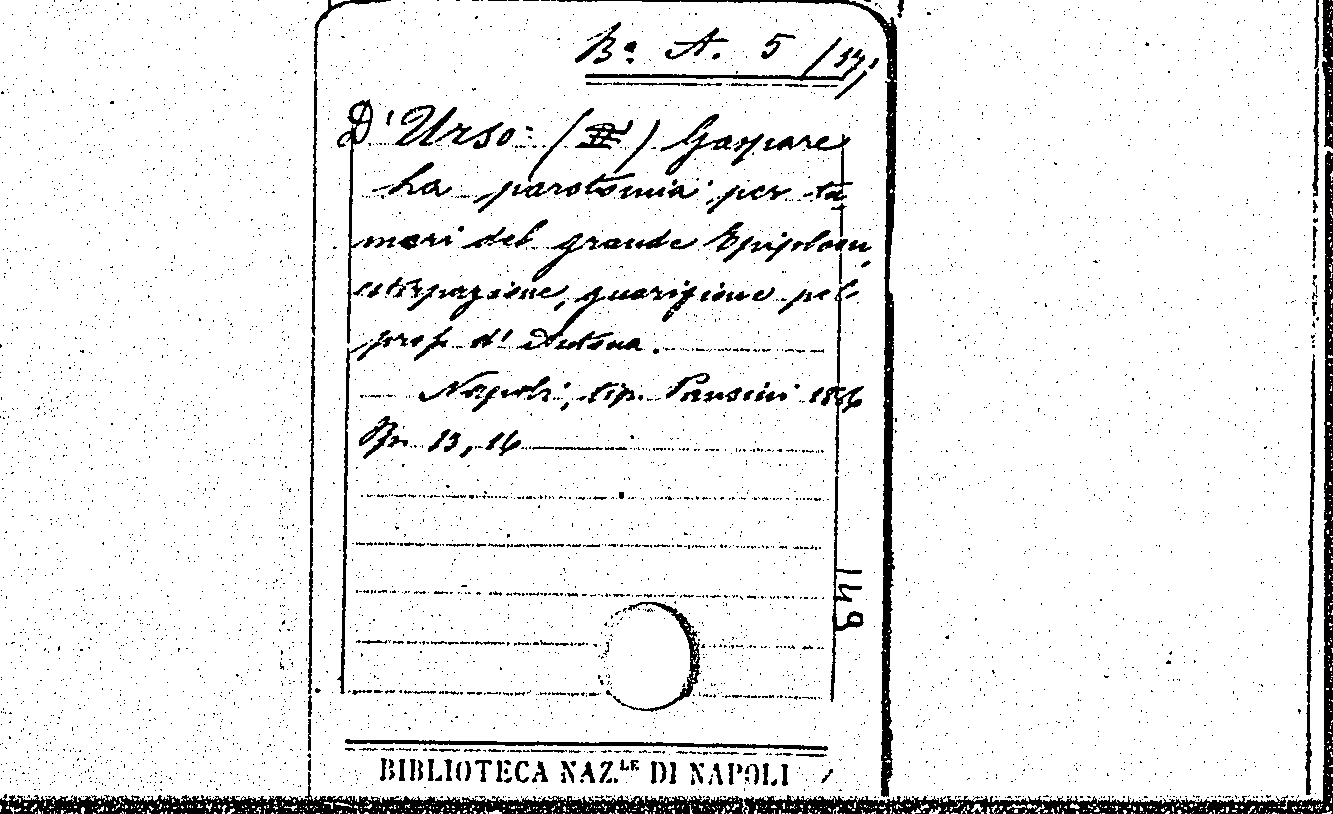 Bª. A. 5 /37,
D'Urso: () Gaspare
La parotomia per tu
mori del grande Epiploon,
estirpazione, guarigione pel
prof. d'Antona.
Napoli, tip. Pansini 1886
Pp. 13, 16
149
BIBLIOTECA NAZ.LE DI NAPOLI